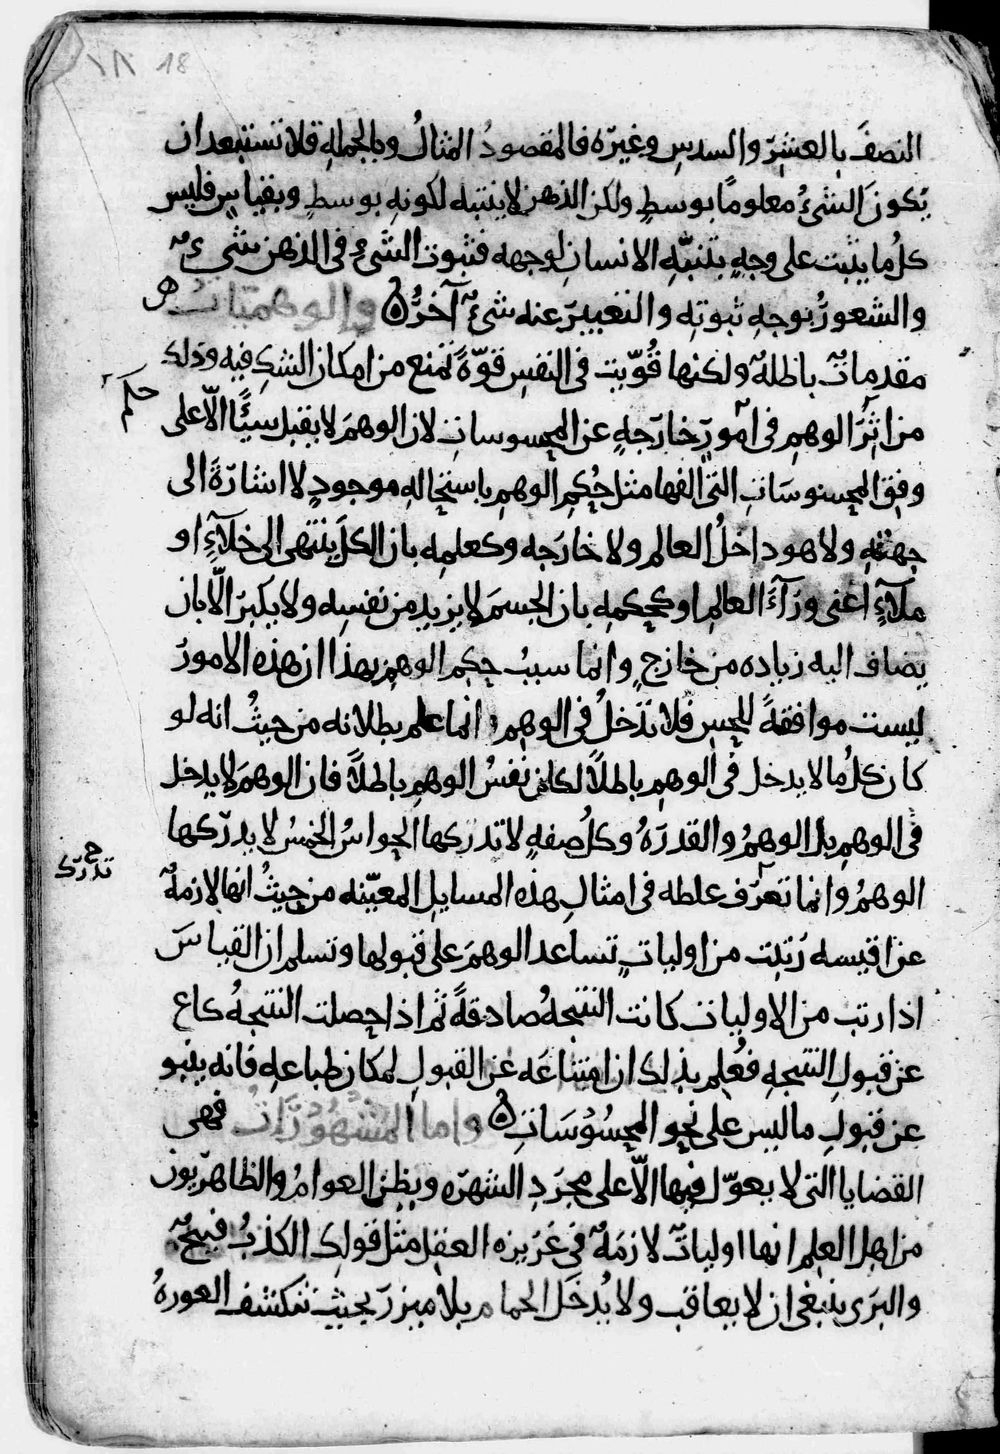 ١٨ 18
النصفَ بالعشرِ والسدسِ وغيرَه فالمقصودُ المثالُ وبالجملةِ فلا تستبعد ان
يكونَ الشئُ معلومًا بوسطٍ ولكن الذهن لا ينتبه لكونهِ بوسطٍ وبقياسٍ فليس
كلُ ما يثبت على وجهٍ يتنبّه الانسان لوجهه فثبوت الشئِ فى الذهن شئٌ
والشعورُ بوجهِ ثبوتِه والتعبيرَ عنه شئٌ آخرُ ۞ والوهميّاتُ هى
مقدماتٌ باطلةٌ ولكنها قُوّيت فى النفسِ قوّةً تمنع من امكان الشكِ فيه وذلك
من اثرِ الوهمِ فى امورٍ خارجهٍ عن المحسوسات لان الوهمَ لا يقبل شيًّا الّا على
حكم
وفقِ المحسوسَاتِ التى الفها مثل حُكمِ الوهمِ باستحالهِ موجودٍ لا اشارةَ الى
جهتهِ ولا هو داخلُ العالم ولا خارجه وكعلمِه بان الكلَ ينتهى الى خلآءٍ او
ملآءٍ اعنى ورآءَ العالمِ او كحكمِه بان الجسمَ لا يزيد من نفسِه ولا يكبرَ الّا بان
يضاف اليه زياده من خارجٍ وانما سببُ حكمِ الوهمِ بهذا ان هذه الامورَ
ليست موافقةً للحسِ فلا تدخلُ فى الوهمِ انما علم بطلانه من حيثُ انه لو
كان كلُ ما لا يدخل فى الوهمِ باطلًا لكان نفسُ الوهمِ باطلًا فان الوهمَ لا يدخل
فى الوهمِ بل الوهمُ والقدرَهُ وكلُ صفهٍ لا تدركها الحواسُ الخمسُ لا يدركها
ح تدرك
الوهمُ وانما تعرّف غلطه فى امثالِ هذه المسايلِ المعيّنه من حيثُ انها لازمةٌ
عن اقيسه رُتبت من اولياتٍ تساعد الوهمَ على قبولها وتسلم ان القياسَ
اذا رتب من الاوليات كانت النتيجهُ صادقةً ثم اذا حصلت النتيجهُ كاع
عن قبولِ النتيجهِ فعُلم بذلك ان امتناعَه عن القبولِ لمكان طباعهِ فانه ينبو
عن قبولِ ما ليس على نحو المحسُوسَاتِ ۞ واما المشهُورَاتُ فهى
القضايا التى لا يعوّل فيها الّا على مجرَدِ الشهرَه ويظن العوامُ والظاهرّيون
من اهلِ العلمِ انها اولياتٌ لازمَهٌ فى غريزه العقل مثل قولِك الكذبُ قبيحٌ
والبرَى ينبغى ان لا يعاقب ولا يُدخَل الحمام بلا ميزرَ بحيث تنكشف العورهُ